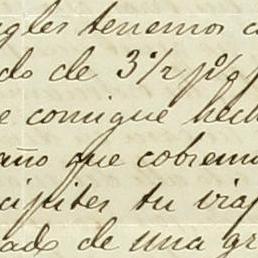 gles tenemos a
do de 3 1/2 p%
e comigue hech
año que cobremo
cipites tu viaj
ado de una gr